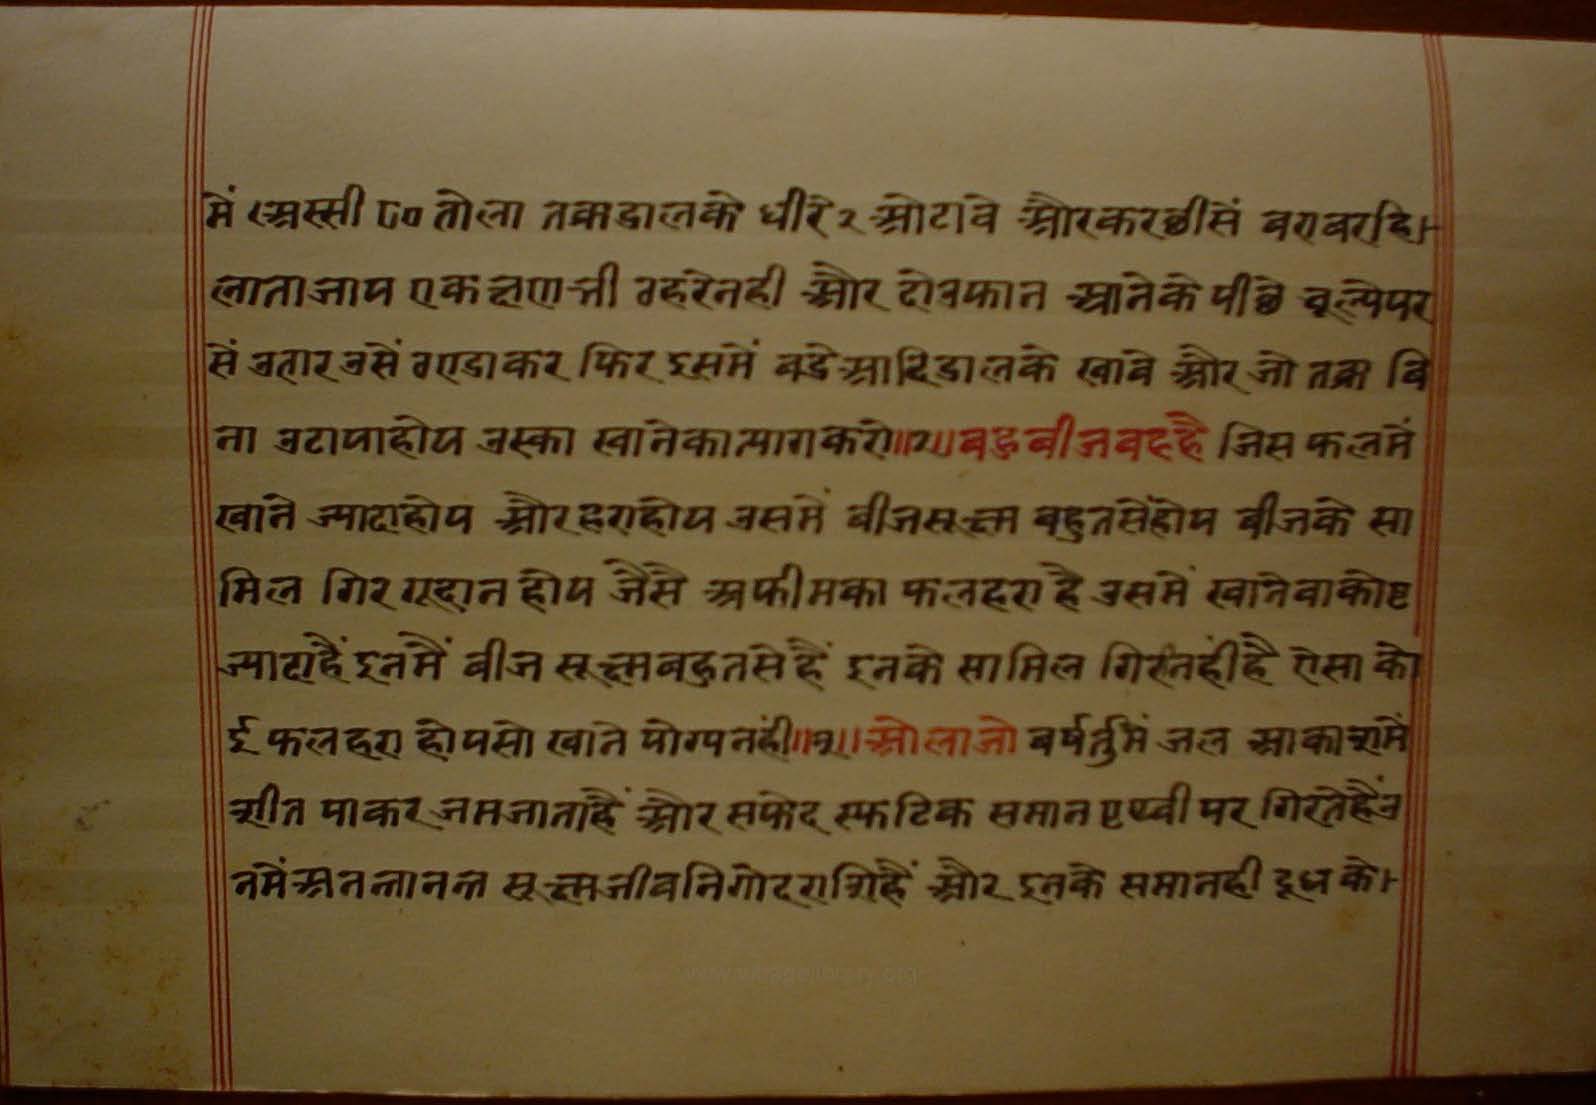 में अस्सी ८० तोला तक्र डालके धीरे २ ओटावे और करछीसें बराबर हि
लाता जाय एक क्षण भी ठहरे नही और दो उफान आनेके पीछे चूल्हेपर
सें उतार उसें ठण्डा कर फिर इसमें बडे आदि डालके खावे और जो तक्र वि
ना उटाया होय उस्का खानेका त्याग करो॥२॥बहुबीज वह है जिस फलमें
खाने ज्यादा होय और हरा होय उसमें बीज सूक्ष्म बहुतसें होय बीजके सा
मिल गिर गूदा न होय जैसै अफीमका फल हरा है उसमें खाने वा कोष्ट
ज्यादा हैं इनमैं बीज सूक्ष्म बहुतसे हैं इनके सामिल गिर नंही है ऐसा को
ई फल हरा होय सो खाने योग्य नंही॥३॥ओला जो वर्षर्तुमें जल आकाशमें
शीत पाकर जम जाता हैं और सफेद स्फटिक समान पृथ्वी पर गिरते हैं उ
नमें अनन्तानन्त सूक्ष्म जीव निगोद राशि हैं और इनके समान ही दूध को
www.jainelibrary.org